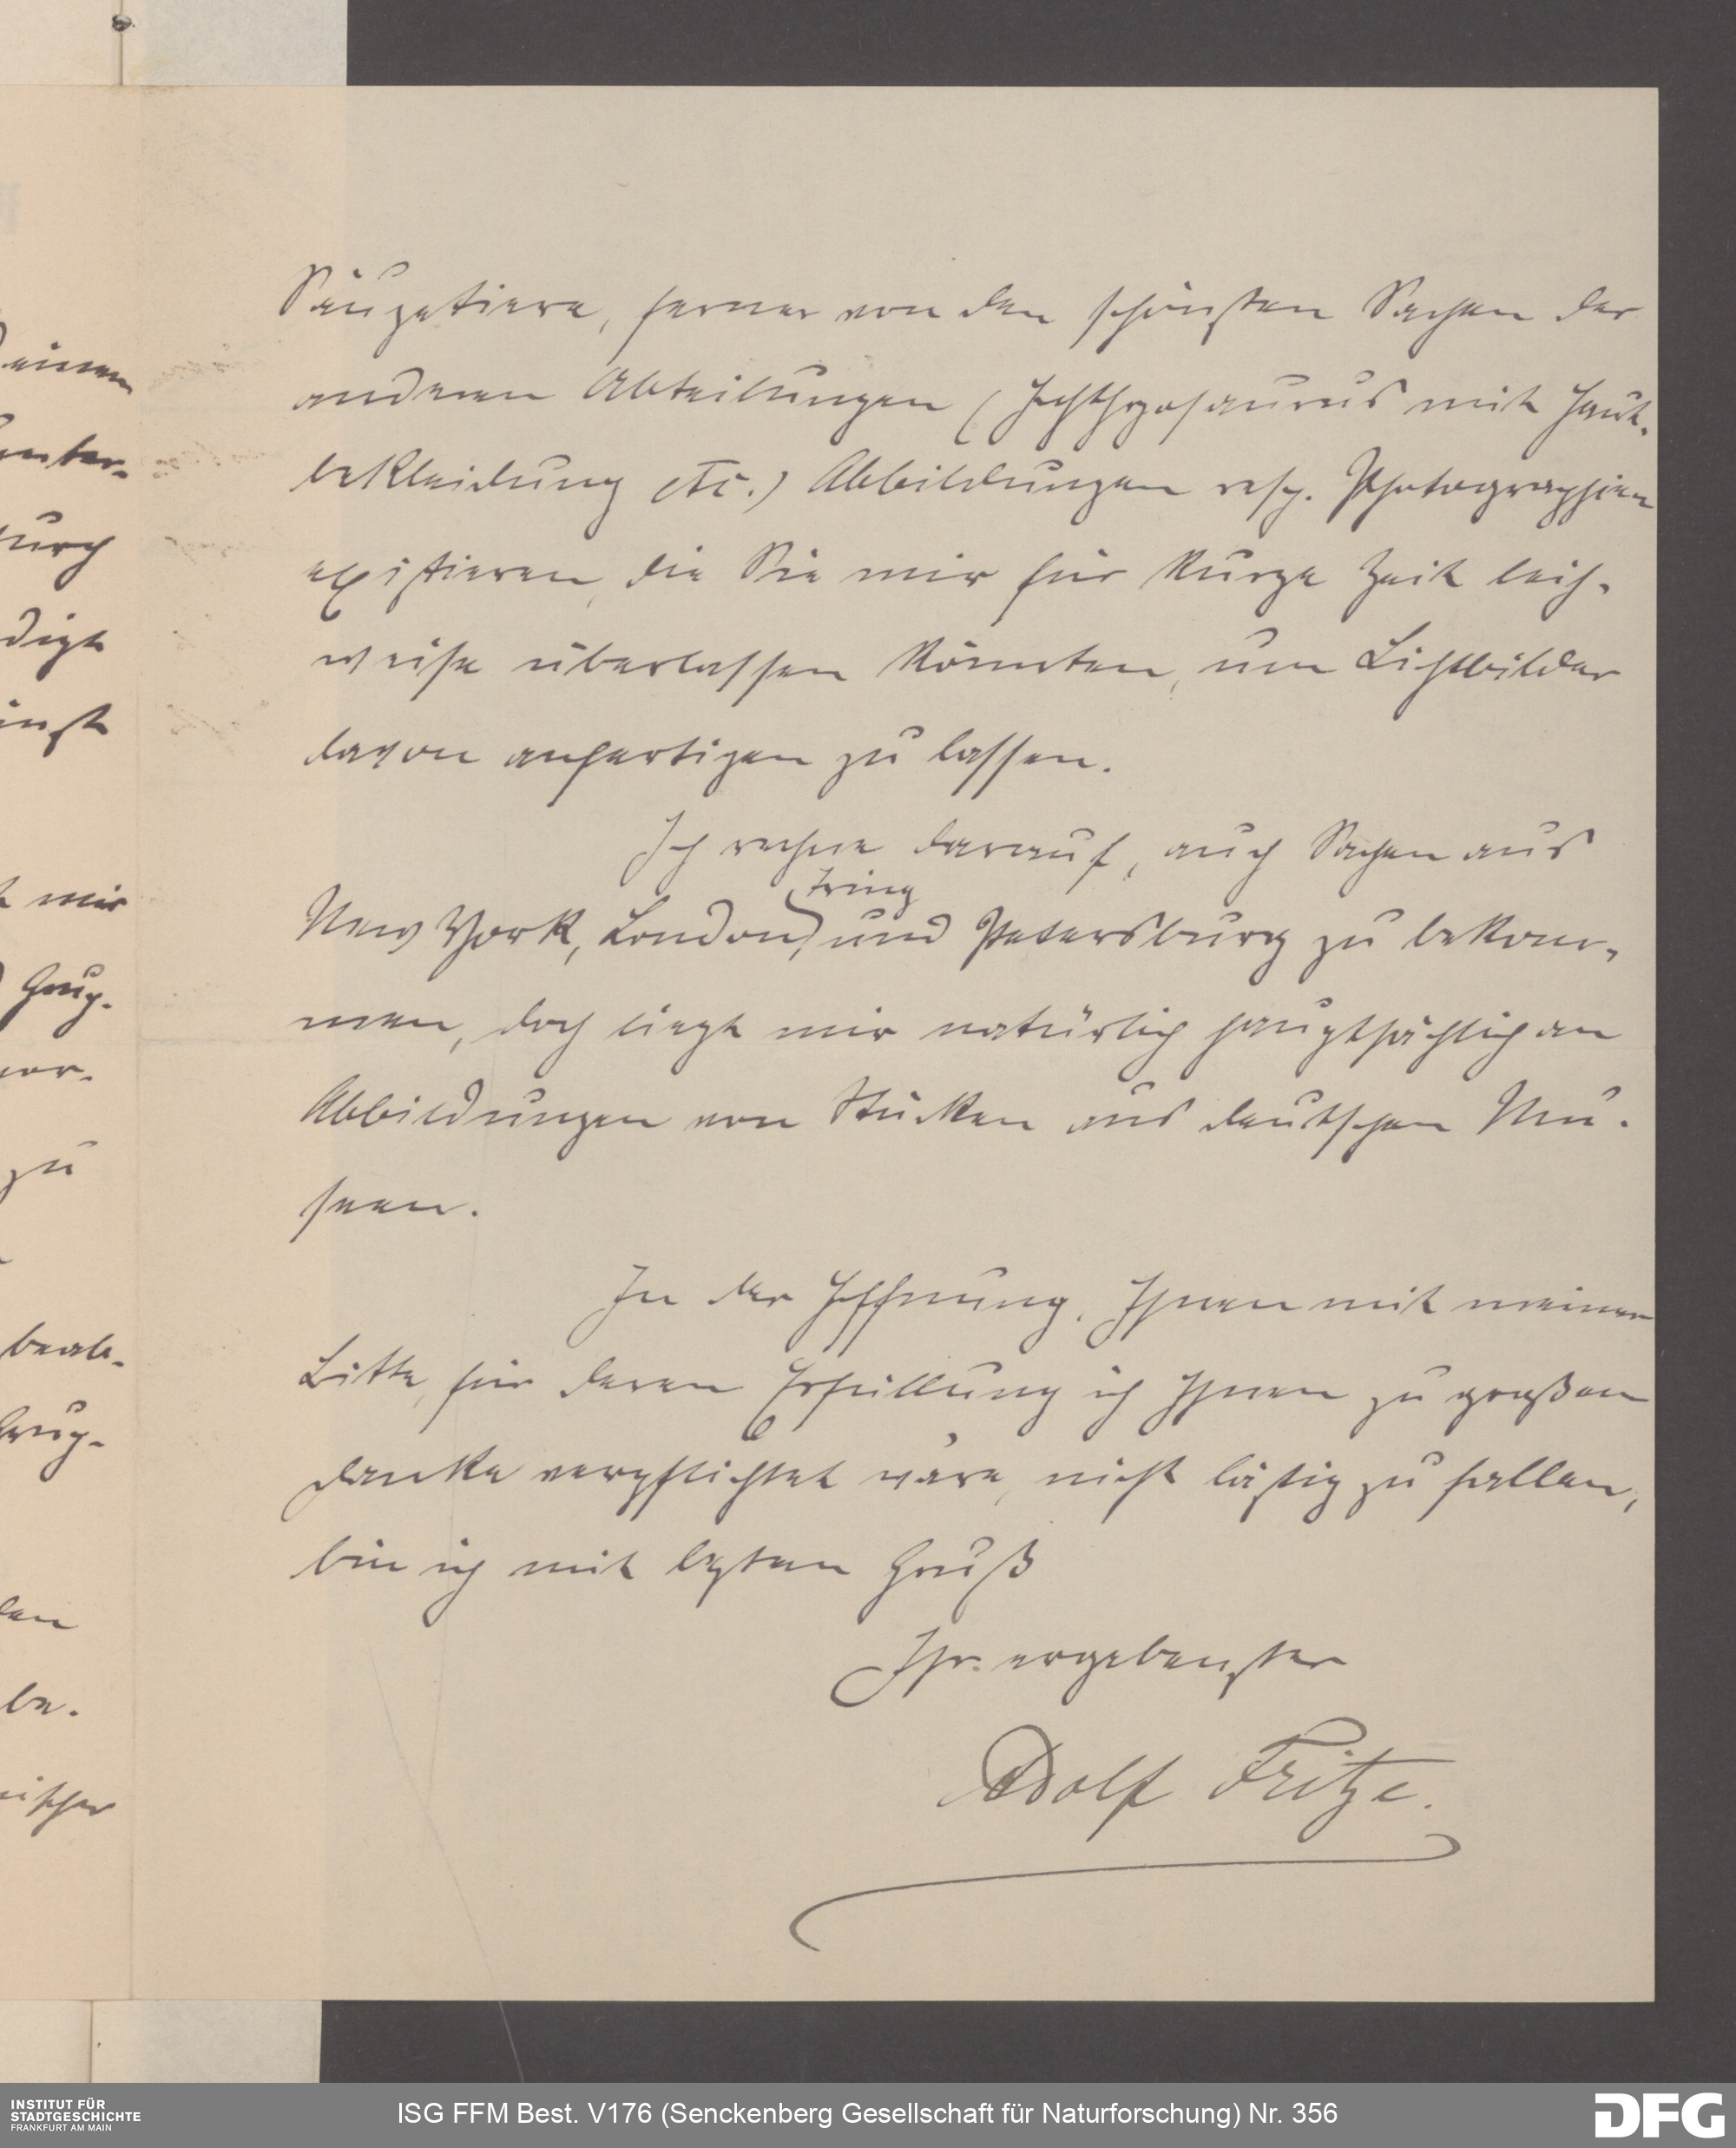 einem
unter-
durch
digt
inst
mir
Grup-
vor-
zu
beab-
Grup-
den
be-
Säugetiere, ferner von den schönsten Sachen der
anderen Abteilungen (Ichthyosaurus mit Haut-
bekleidung etc.) Abbildungen resp. Photographien
existieren, die Sie mir für kurze Zeit leih-
weise überlassen könnten, um Lichtbilder
davon anfertigen zu lassen.
Ich rechne darauf, auch Sachen aus
Tring
New York, London, und Petersburg zu bekom-
men, doch liegt mir natürlich hauptsächlich an
Abbildungen von Stücken aus deutschen Mu-
seen.
In der Hoffnung, Ihnen mit meiner
Bitte, für deren Erfüllung ich Ihnen zu großem
Danke verpflichtet wäre, nicht lästig zu fallen,
bin ich mit bestem Gruß
Ihr ergebenster
Adolf Fritze.
INSTITUT FÜR
STADTGESCHICHTE
FRANKFURT AM MAIN
ISG FFM Best. V176 (Senckenberg Gesellschaft für Naturforschung) Nr. 356
DFG